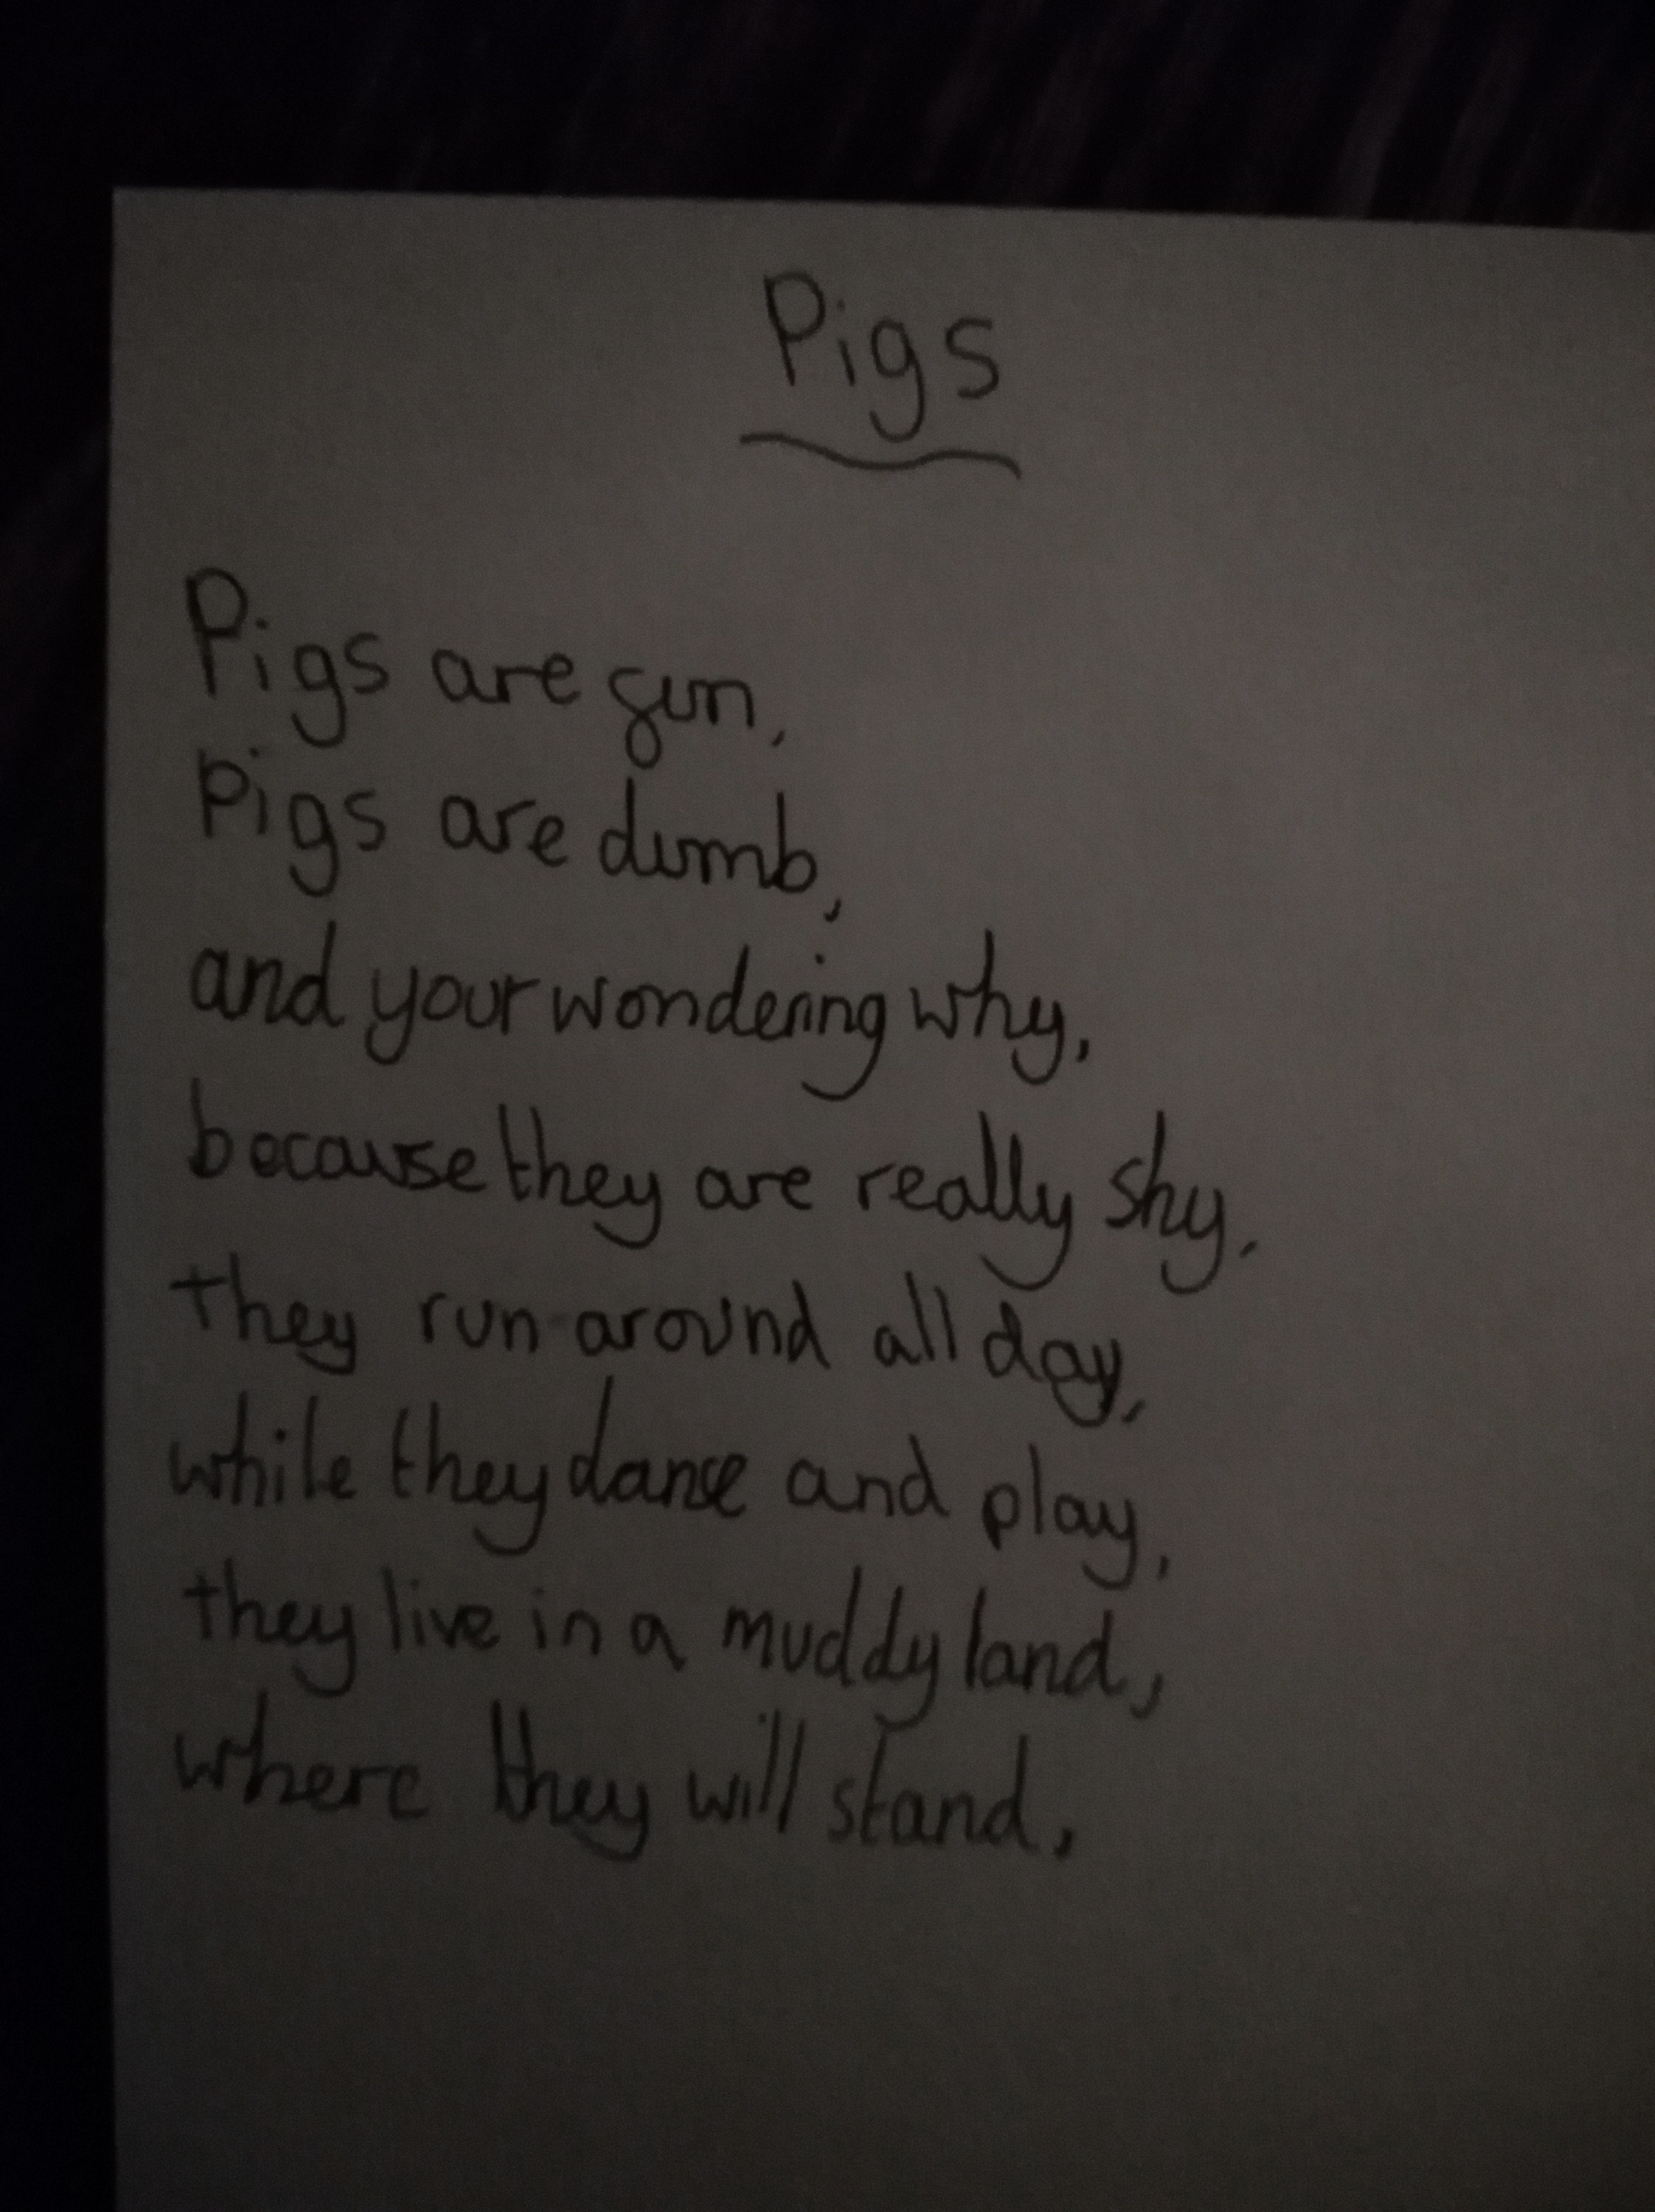 Pigs
Pigs are fun,
Pigs are dumb,
and your wondering why,
because they are really shy,
they run around all day,
while they dance and play,
they live in a muddy land,
where they will stand,